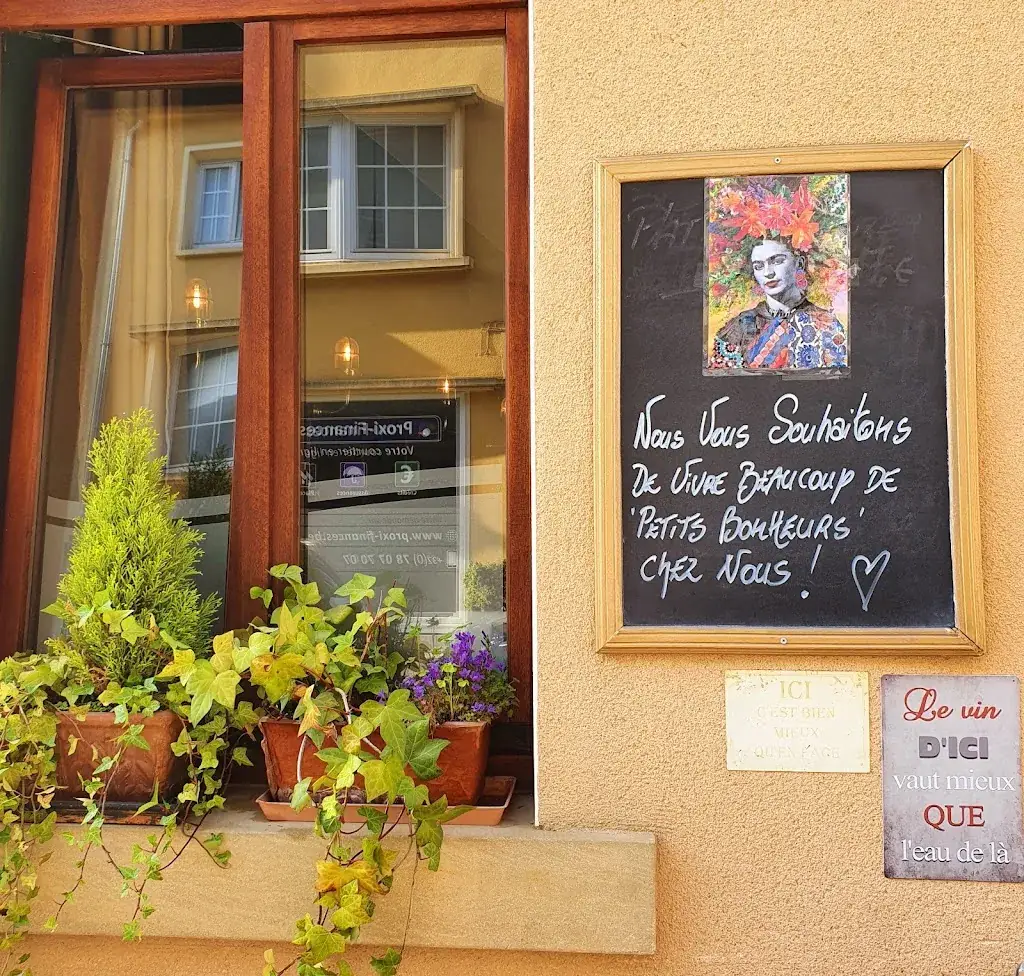 Proxi-Finances
Votre courtier en lig
Crédit
www.proxi-finances.be
+32(0) 78 07 70 07
Nous Vous Souhaitons
De Vivre Beaucoup de
'Petits Bonheurs'
chez Nous !
ICI
C'EST BIEN
MIEUX
QU'EN FACE
Le vin
D'ICI
vaut mieux
QUE
l'eau de là